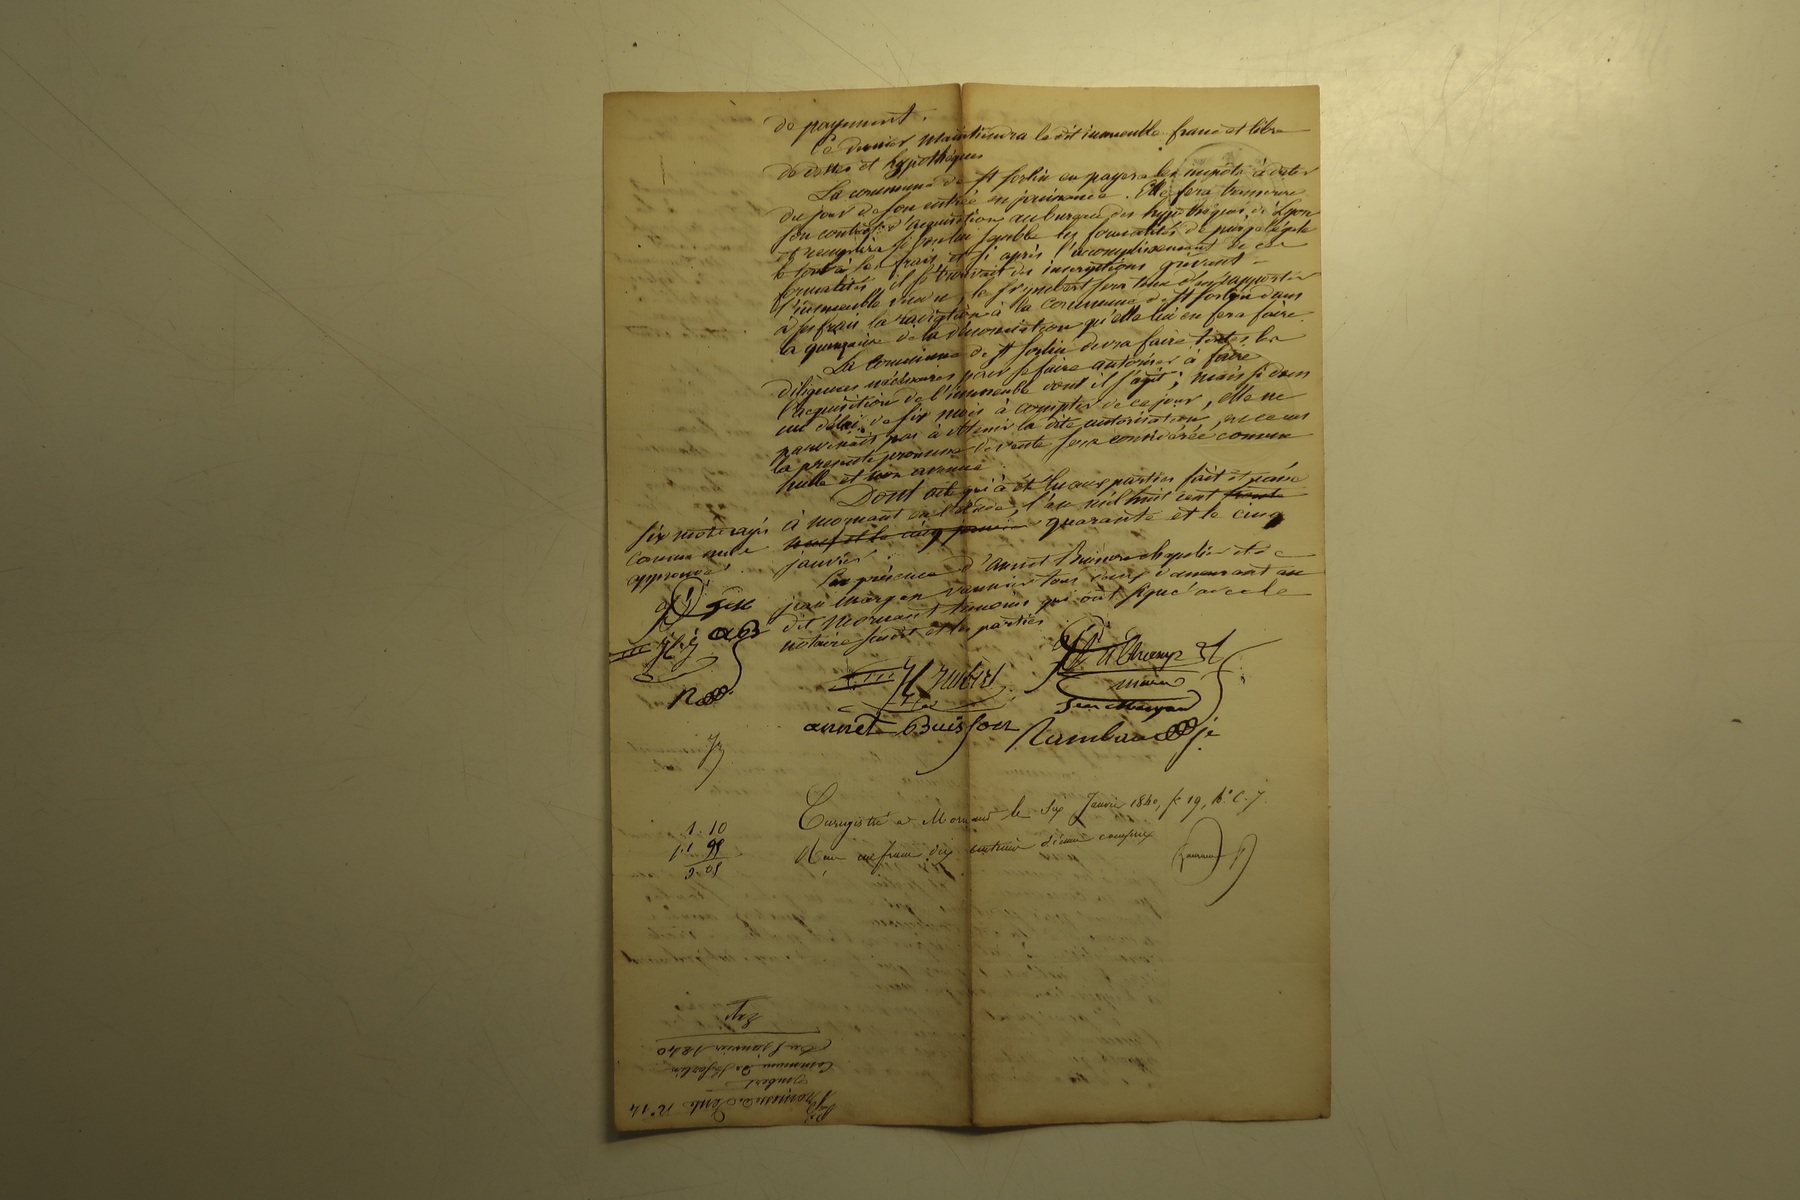 de payement.
Ce dernier maintiendra le dit immeuble franc et libre
de dettes et hypothèques
La commune de St Sorlin en payera les impôts à dater
du jour de son entrée en jouissance. Elle fera transcrire
son contrat d'acquisition au bureau des hypothèques de Lyon
et remplira si bon lui semble les formalités de purge légale
le tout à ses frais et si après l'accomplissement de ces
formalités, il se trouvait des inscriptions grévant
l'immeuble vendu, le sr Imbert sera tenu d'en rapporter
à ses frais la radiation à la commune de St Sorlin dans
la quinzaine de la dénonciation qu'elle lui en fera faire.
La commune de St Sorlin devra faire toutes les
diligences nécessaires pour se faire autoriser à faire
l'acquisition de l'immeuble dont il s'agit; mais si dans
un délai de six mois à compter de ce jour, elle ne
parvenait pas à obtenir la dite autorisation, en ce cas
la présente promesse de vente sera considérée comme
nulle et non avenue
Dont acte qui a été lu aux parties fait et passé
à Mornant en l'étude, l'an mil huit cent trente
neuf et le cinq janvier quarante et le cinq
janvier
En présence d'Annet Buisson chapelier et de
Jean Marjon vannier tous deux demeurant au
dit Mornant témoins qui ont signé avec le
notaire susdit et les parties
six mots rayés
comme nuls
approuvé
H Imbert
maire
annet Buisson
Jean Marjon
Rambaud
1 10
1. 95
3. 05
Enregistré à Mornant le six Janvier 1840, fo 19, Ro. C. 7.
Reçu un franc dix centimes décime compris
No 14
Promesse de vente
Imbert
Commune de St Sorlin
Du 5 janvier 1840
Exp